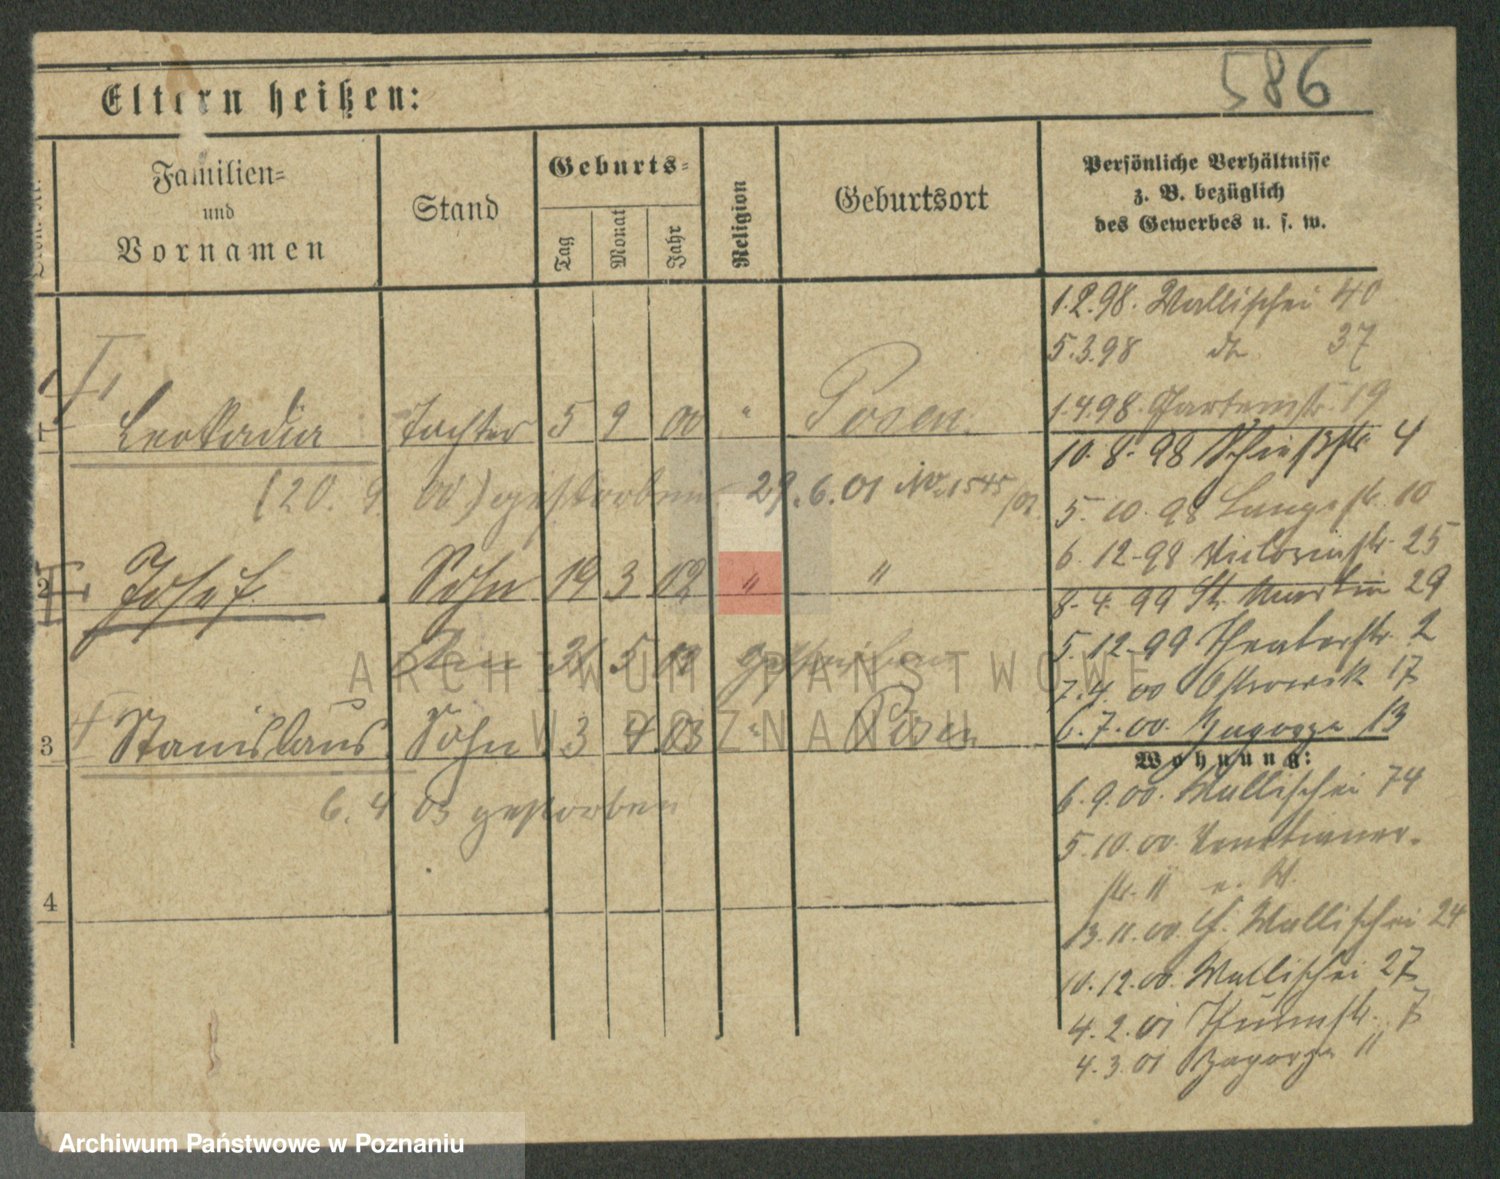 586
Eltern heißen:
Familien-
und
Vornamen
Stand
Geburts-
Tag
Monat
Jahr
Religion
Geburtsort
Persönliche Verhältnisse
z. B. bezüglich
des Gewerbes u. s. w.
1.2.98. Wallischei 40
5.3.98 do 37
1.4.98. Gartenstr. 19
10.8.98 Schießstr. 4
5.10.98 Langestr. 10
6.12.98 Victoriastr. 25
8.4.99 St. Martin 29
5.12.99 Theaterstr. 2
7.4.00 Ostrowek 17
6.7.00. Zagorze 13
Wohnung:
6.9.00. Wallischei 74
5.10.00. Venetianer-
str. 11
13.11.00. Wallischei 24
10.12.00. Wallischei 27
4.2.01 Thurmstr. 7
4.3.01 Zagorze 11
1 Leokadia Tochter 5 9 00 " Posen.
(20. 9 00) gestorben 29.6.01 No. 1545/01
2 Josef Sohn 19 3 02 " "
31 5 02 gestorben
3 Stanislaus Sohn 3 4 03 " Posen
6. 4 03 gestorben
4
ARCHIWUM PAŃSTWOWE
W POZNANIU
Archiwum Państwowe w Poznaniu